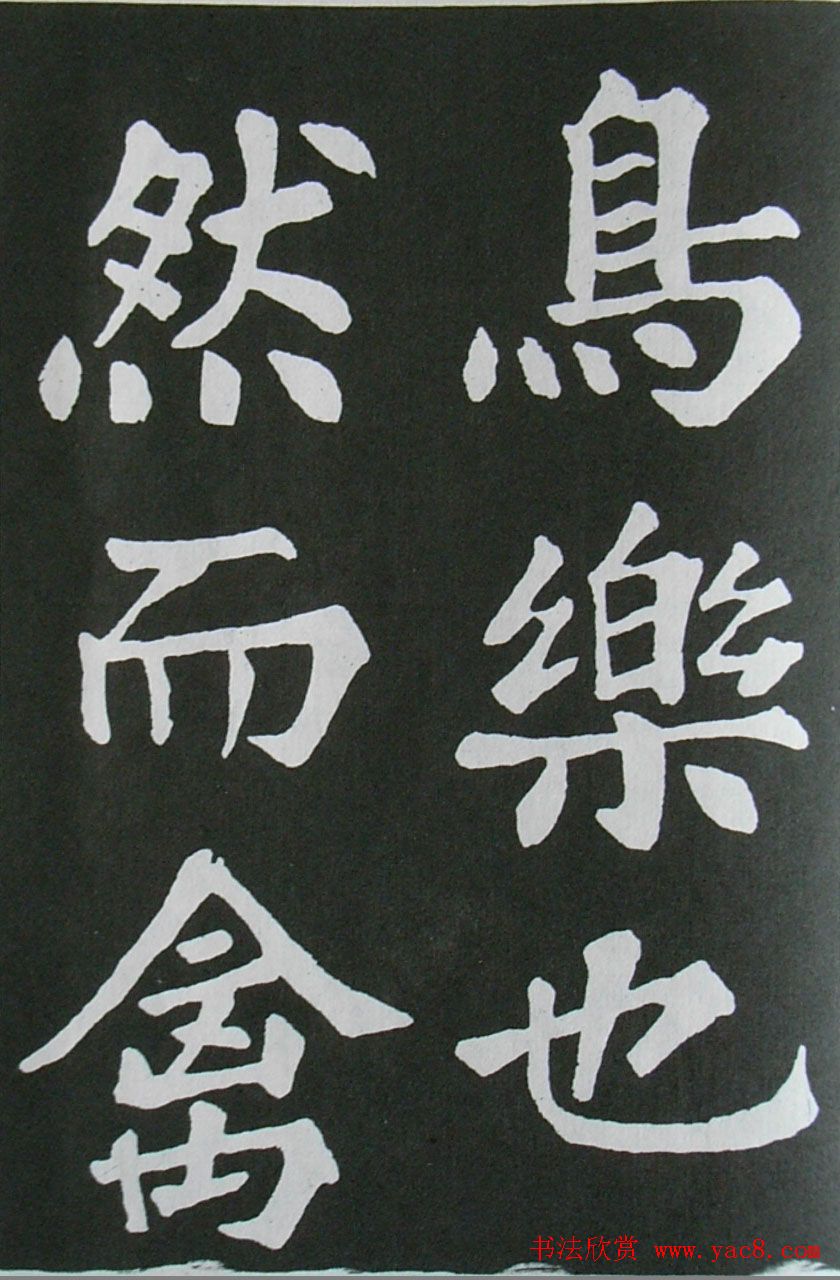 鳥樂也
然而禽
书法欣赏 www.yac8.com